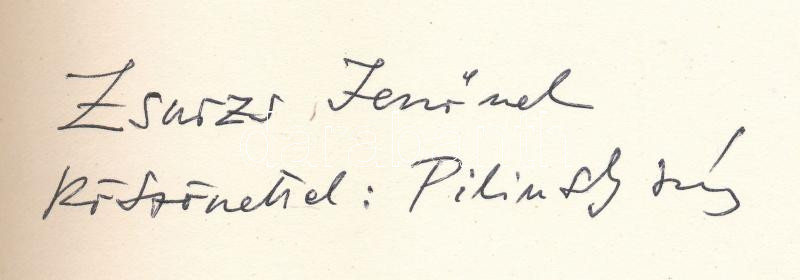 Zsurzs Jenőnek
köszönettel: Pilinszky János